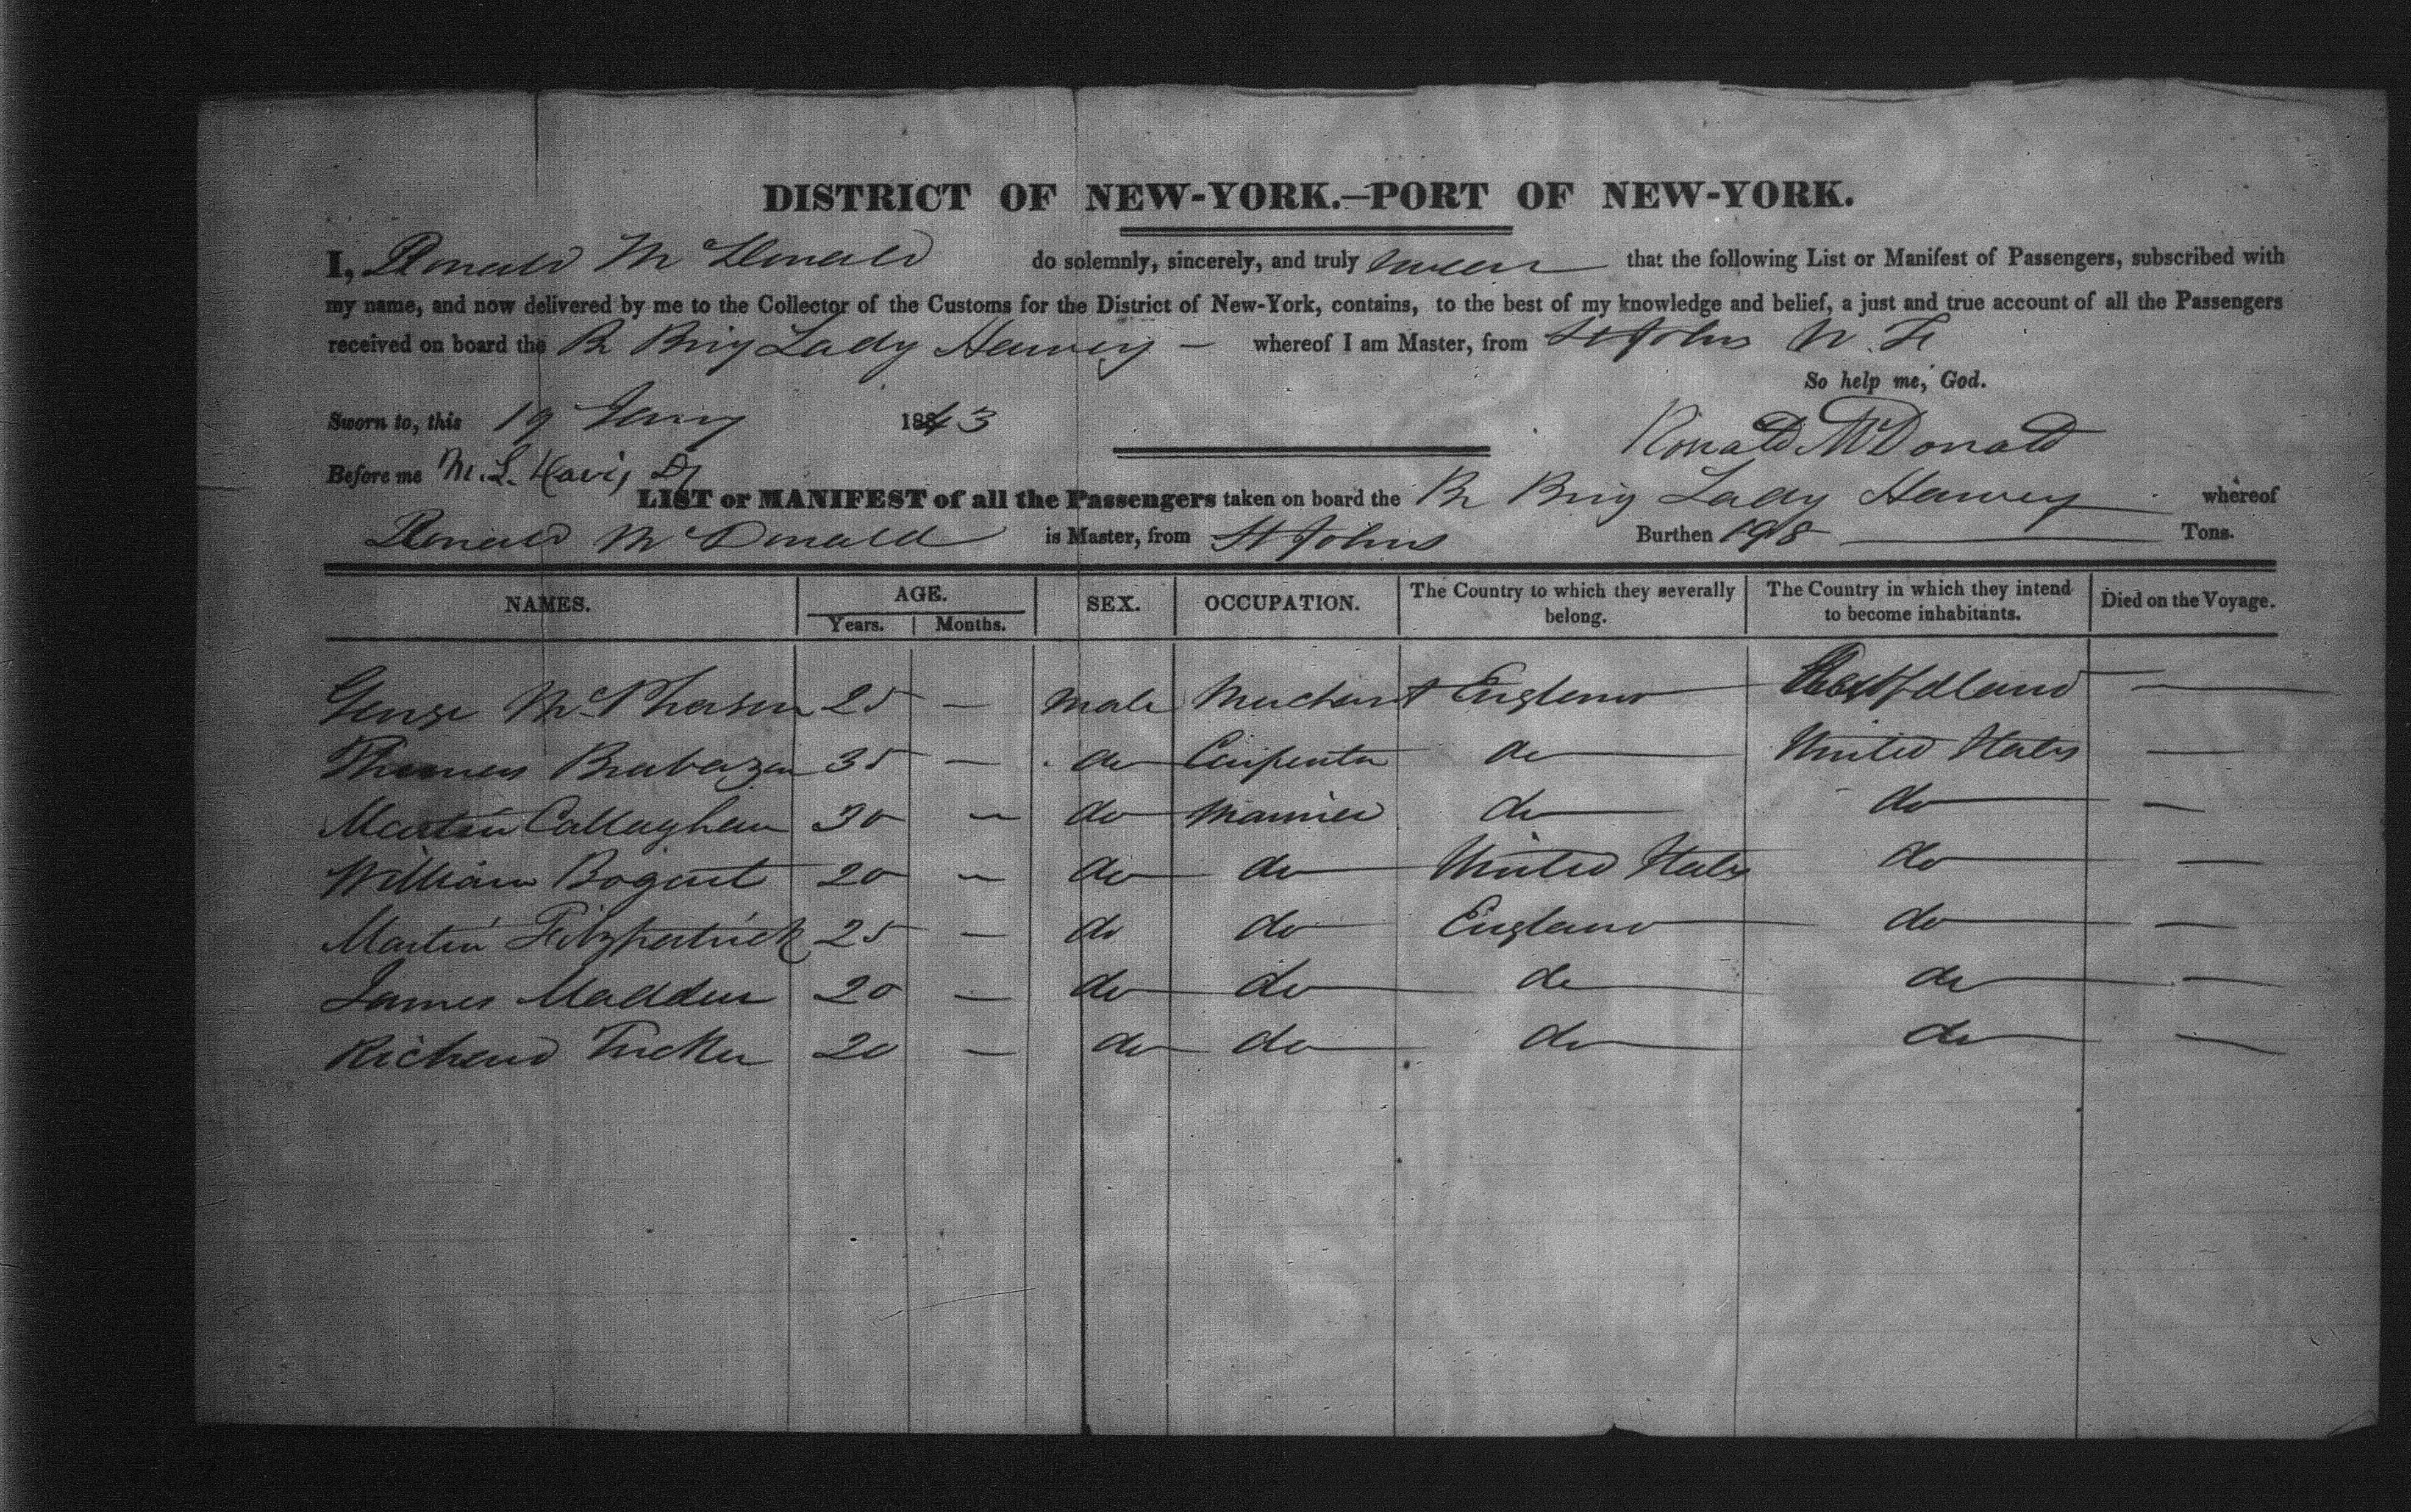 DISTRICT OF NEW-YORK.—PORT OF NEW-YORK.
I, Ronald Mc Donald do solemnly, sincerely, and truly swear that the following List or Manifest of Passengers, subscribed with
my name, and now delivered by me to the Collector of the Customs for the District of New-York, contains, to the best of my knowledge and belief, a just and true account of all the Passengers
received on board the Br Brig Lady Harvey — whereof I am Master, from St Johns N. F.
So help me, God.
Sworn to, this 19 Jany 1843
Ronald McDonald
Before me M. L. Davis
LIST or MANIFEST of all the Passengers taken on board the Br Brig Lady Harvey whereof
Ronald Mc Donald is Master, from St Johns Burthen 198 Tons.
NAMES. AGE. SEX. OCCUPATION. The Country to which they severally belong. The Country in which they intend to become inhabitants. Died on the Voyage.
Years. Months.
George McPherson 25 — male Merchant England —
Thomas Brabazon 35 — do Carpenter do United States —
Martin Callaghan 30 — do Mariner do do —
William Bogart 20 — do do United States do —
Martin Fitzpatrick 25 — do do England do —
James Madden 20 — do do do do —
Richard Tucker 20 — do do do do —